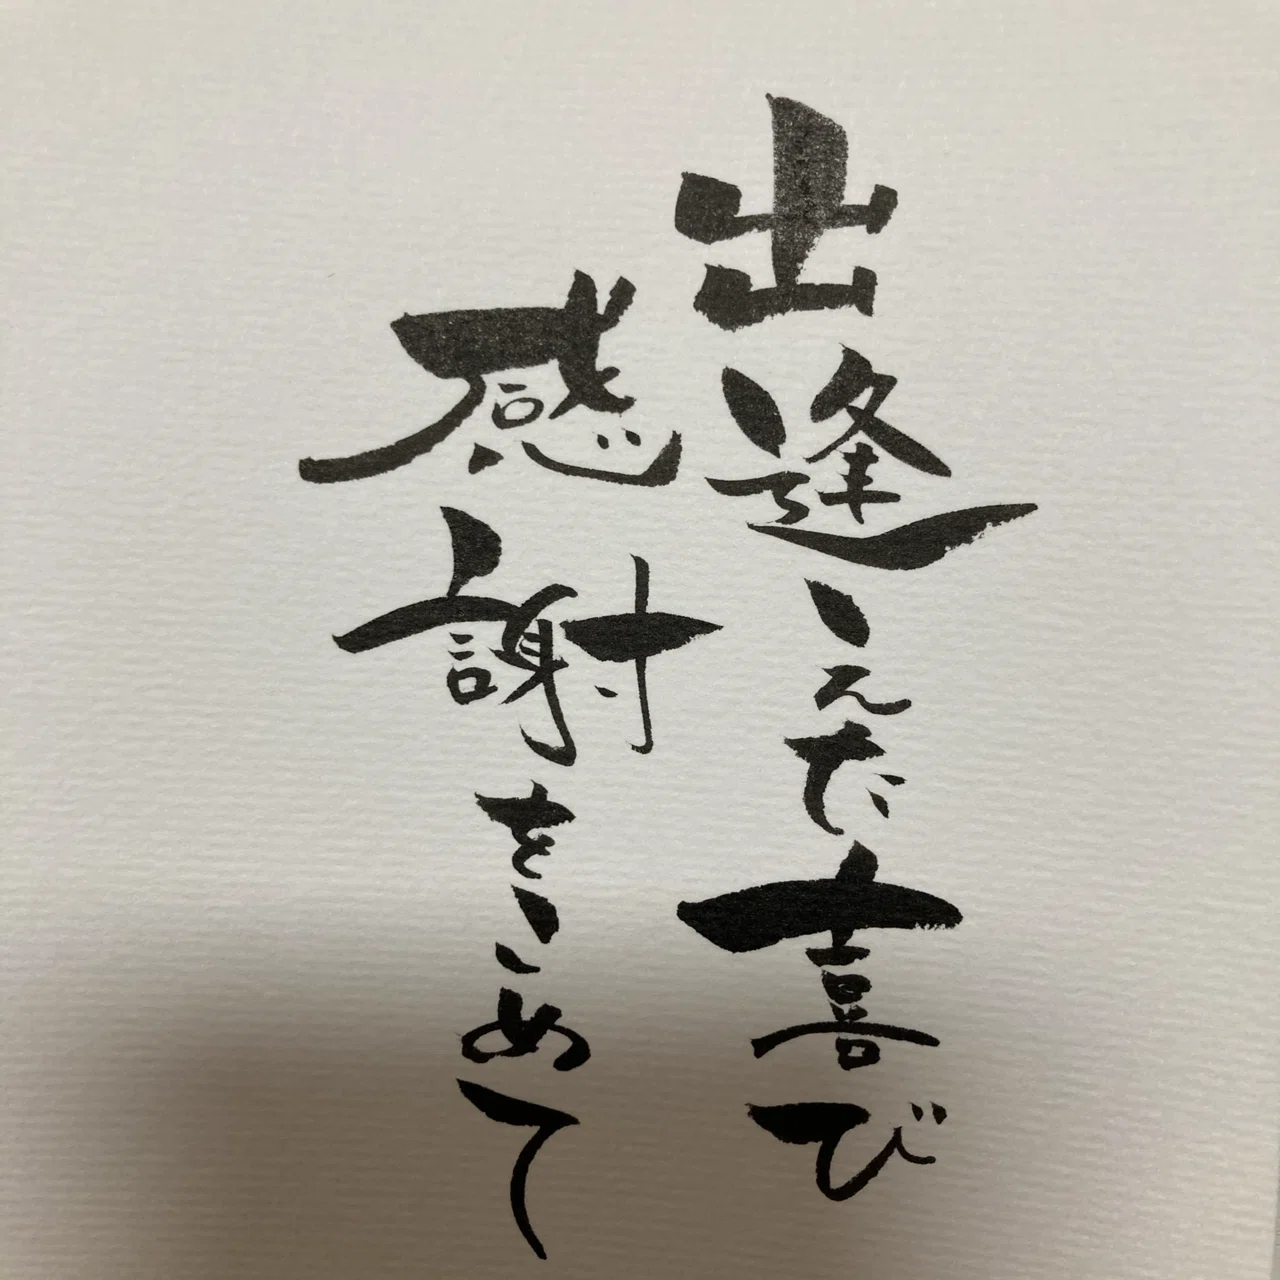 出逢えた喜び
感謝をこめて